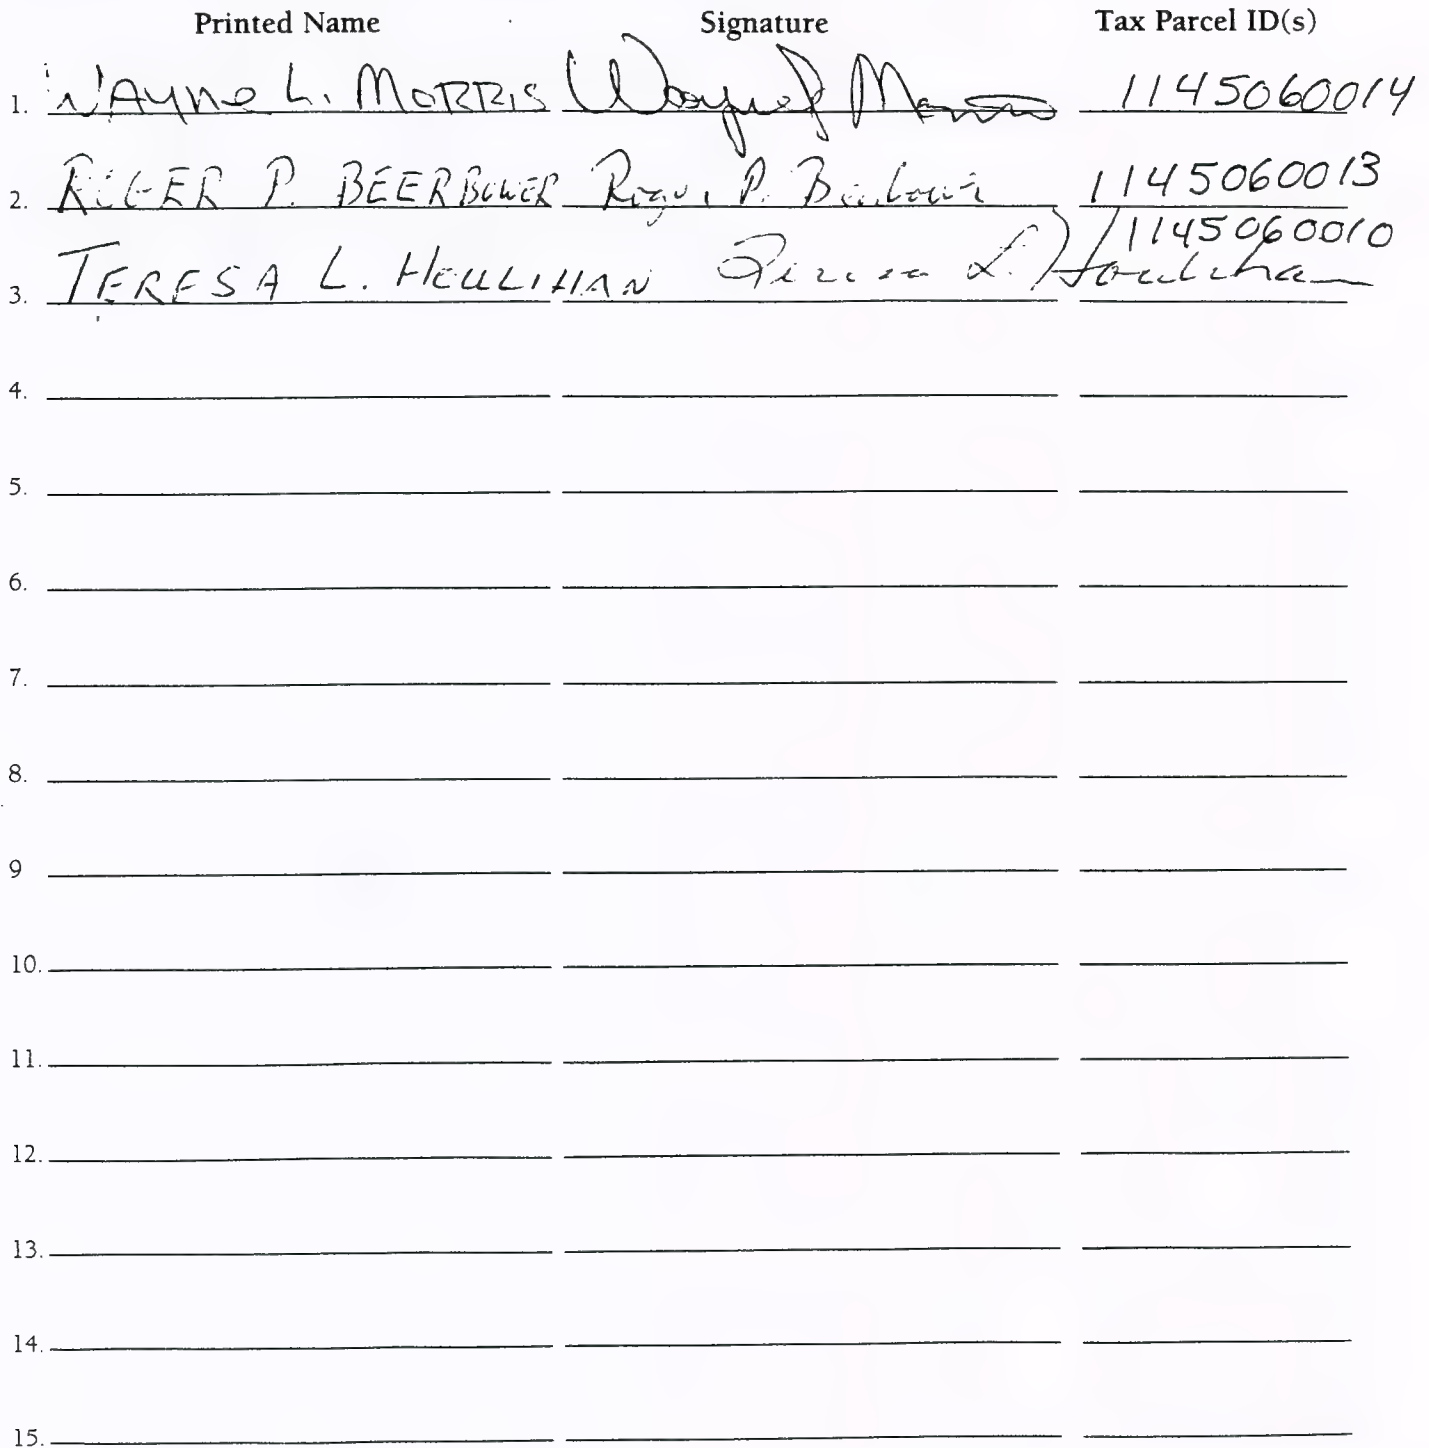 Printed Name Signature Tax Parcel ID(s)
1. WAYNE L. MORRIS Wayne L Morris 1145060014
2. ROGER P. BEERBOWER Roger P. Beerbower 1145060013
1145060010
3. TERESA L. HOULIHAN Teresa L. Houlihan
4.
5.
6.
7.
8.
9
10.
11.
12.
13.
14.
15.